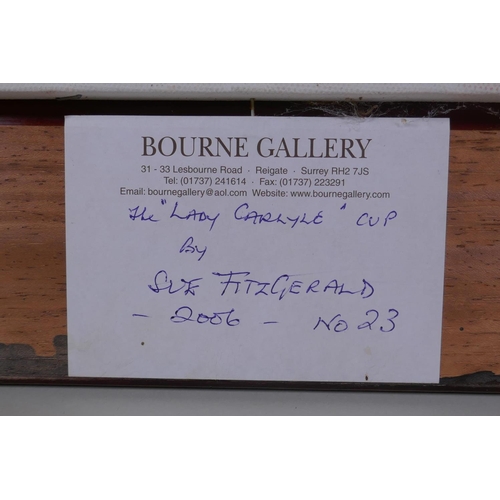 BOURNE GALLERY
31 - 33 Lesbourne Road · Reigate · Surrey RH2 7JS
Tel: (01737) 241614 · Fax: (01737) 223291
Email: bournegallery@aol.com Website: www.bournegallery.com
The "LADY CARLYLE" CUP
By
SUE FITZGERALD
- 2006 - No 23